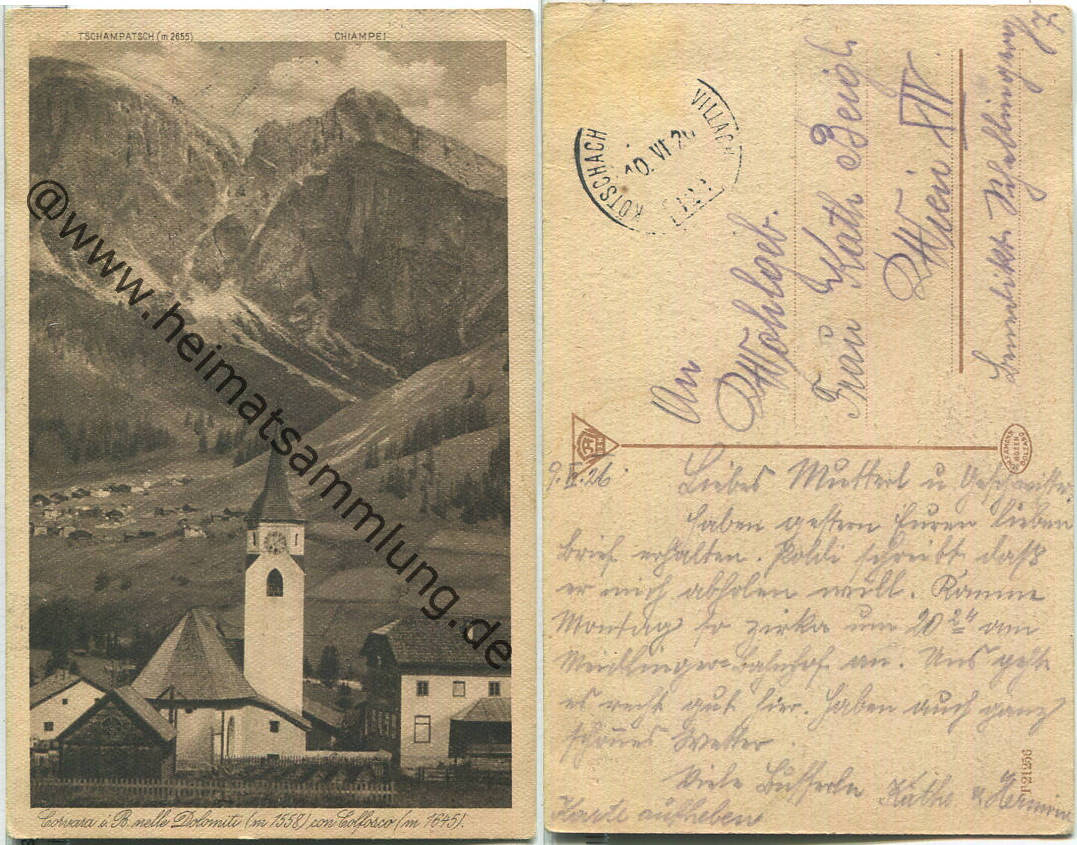 TSCHAMPATSCH (m 2655)
CHIAMPEI
@www.heimatsammlung.de
Corvara i. B. nelle Dolomiti (m 1558) con Colfosco (m 1645).
KÖTSCHACH VILLACH
10. VI 26
An
Wohlgeb.
Frau Kath Beigl
Wien XII
7
9. 26
Liebes Mutterl u Geschwister
Haben gestern Euren lieben
Brief erhalten. Poldi schreibt daß
er mich abholen will. Komme
Montag so zirka um 20 24 am
Meidlinger-Bahnhof an. Uns geht
es recht gut hier. Haben auch ganz
schönes Wetter.
Viele Busserln Käthe u Hermine
Karte aufheben
21256